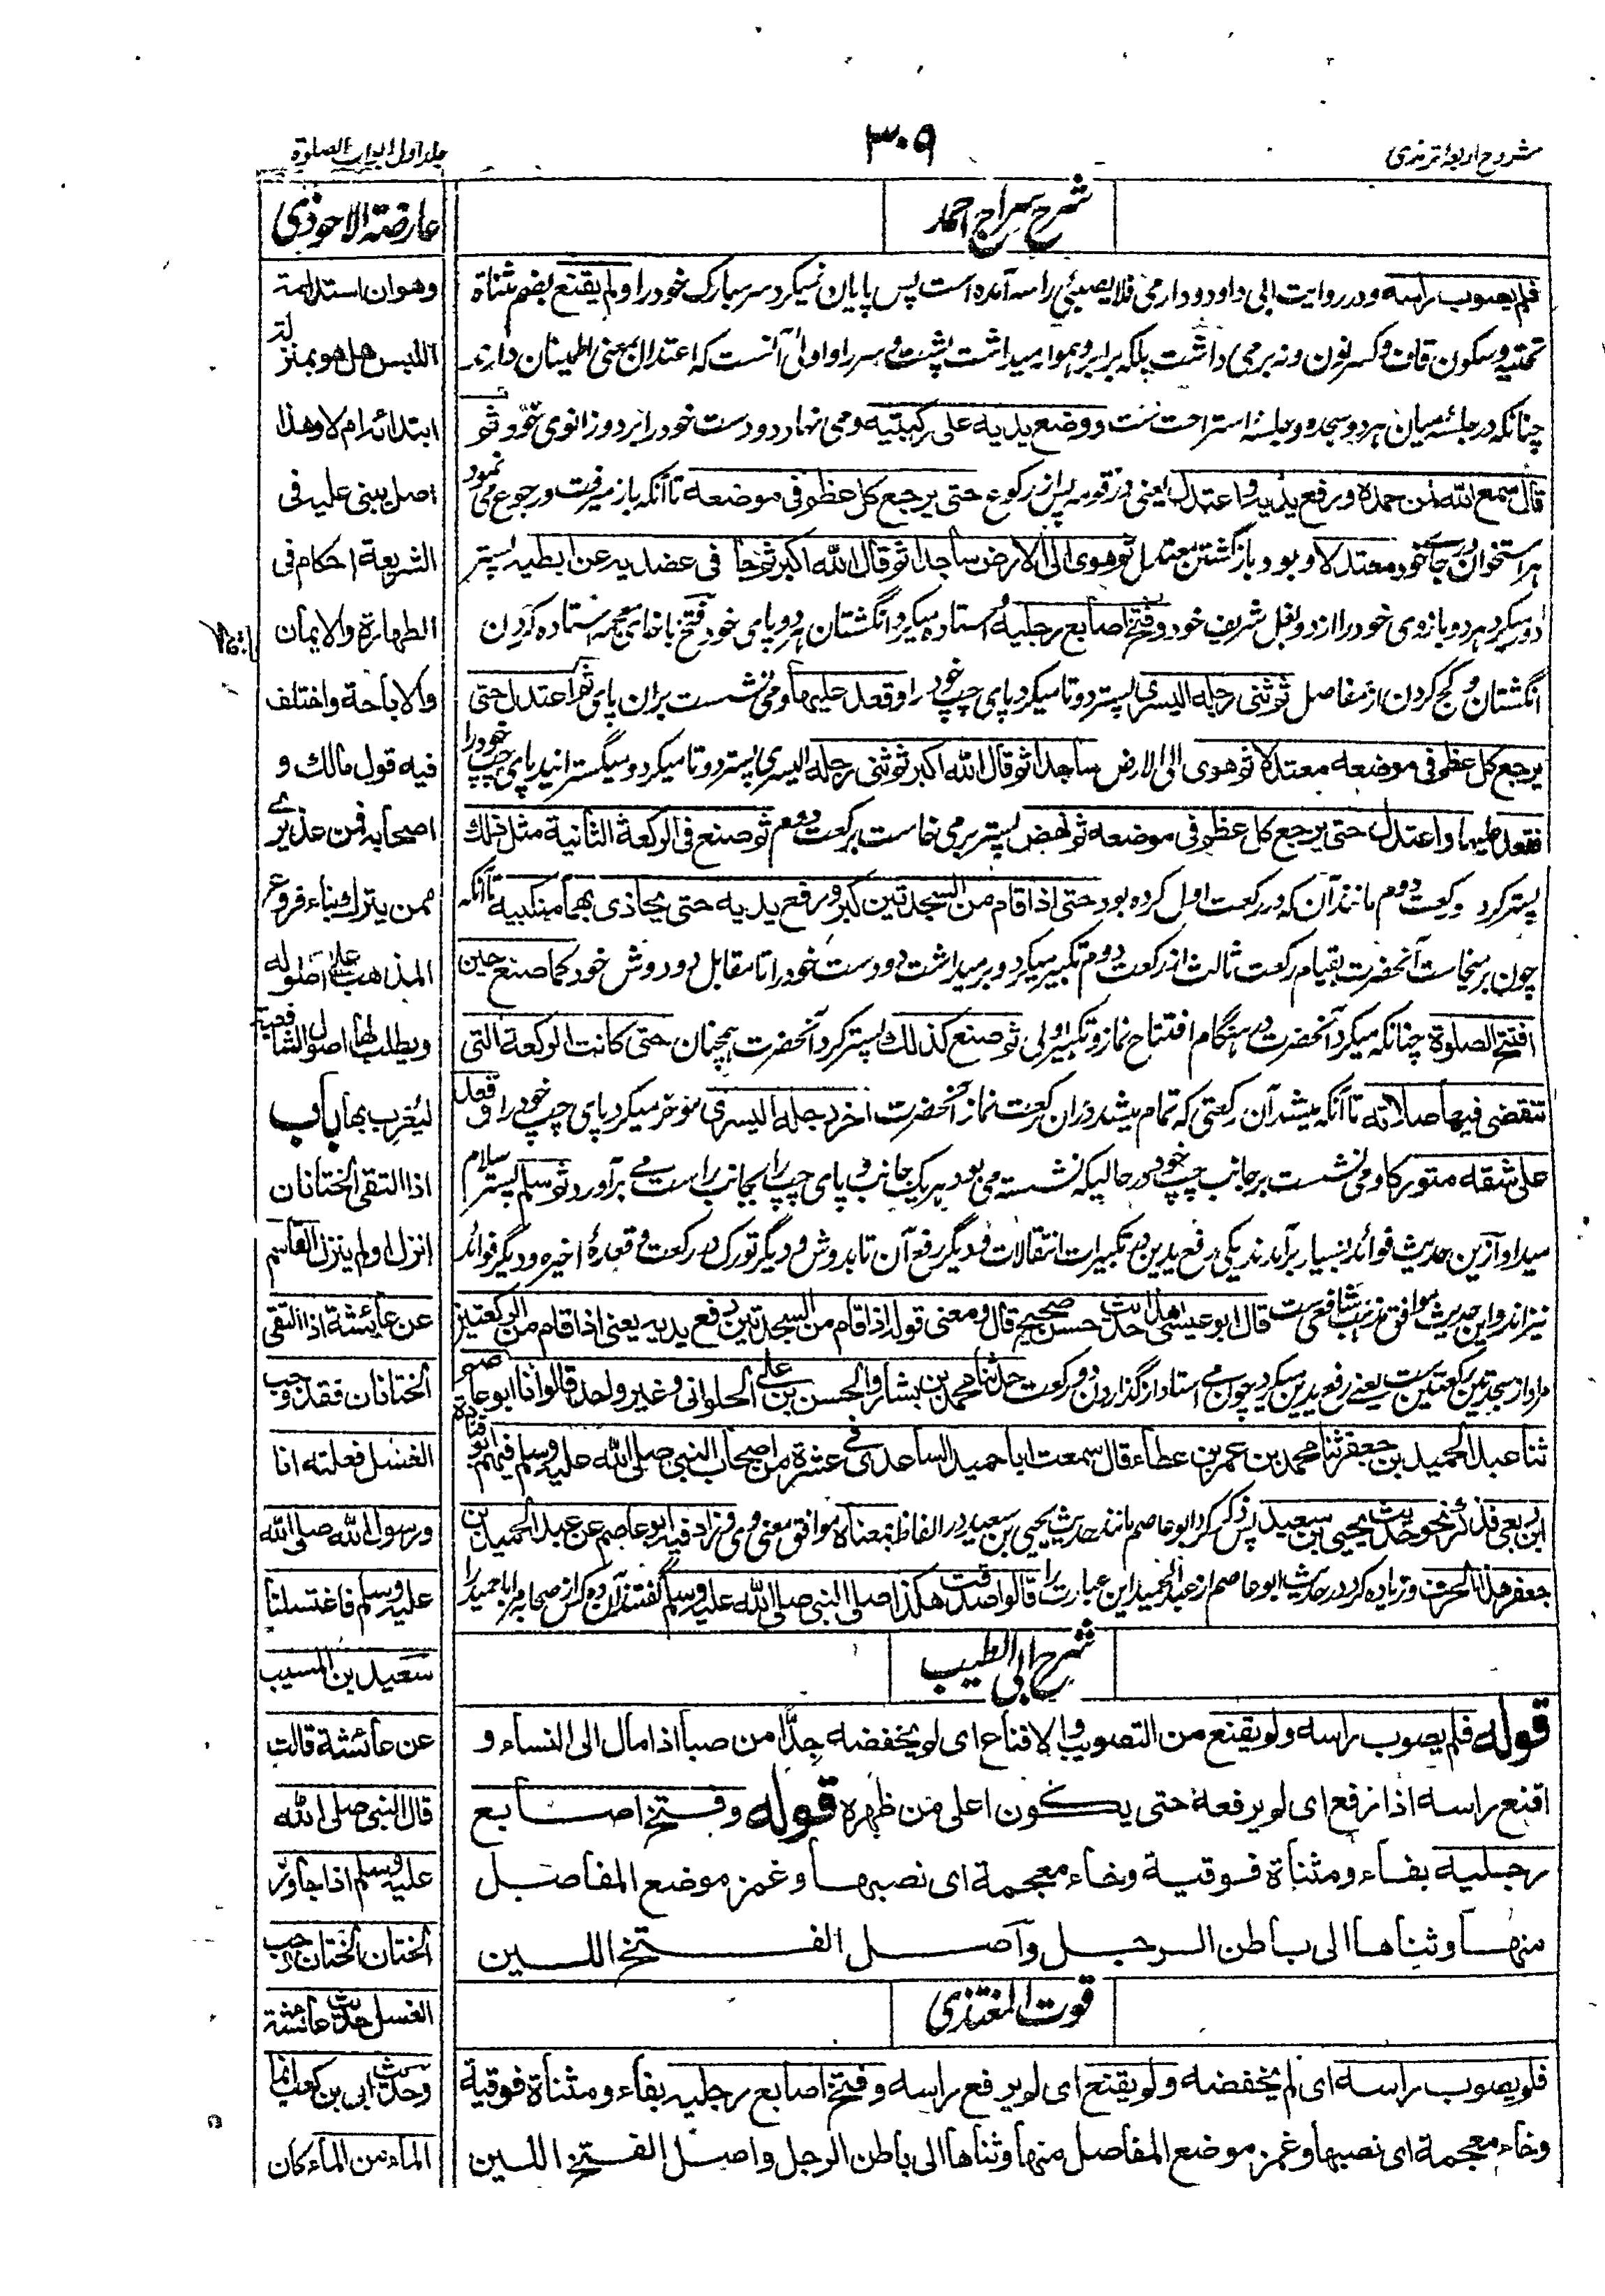 شروح اربعۀ ترمذی
۳۰۹
جلد اول ابواب الصلوة
شرح سراج احمد
فلم یصوب راسه ودر روایت ابی داود ودارمی فلا یصبی راسه آمده است پس پایان نمیکرد سر مبارک خود را ولم یقنع بضم مثناة
تحتیه وسکون قاف وکسر نون ونه برمی داشت بلکه برابر وهموار میداشت پشت وسر را واولی آنست که اعتدال بمعنی اطمینان دارند
چنانکه در جلسۀ میان هر دو سجده وجلسۀ استراحت ست ووضع یدیه علی رکبتیه ومی نهاد دو دست خود را بر دو زانوی خود ثم
قال سمع الله لمن حمده ورفع یدیه واعتدل یعنی در قومه پس از رکوع حتی یرجع کل عظم فی موضعه تا آنکه باز میرفت ورجوع می نمود
هر استخوان در جای خود معتدلا وبود بازگشتن معتدل ثم هوی الی الارض ساجدا ثم قال الله اکبر ثم جافی عضدیه عن ابطیه پستر
دور میکرد هر دو بازوی خود را از دو بغل شریف خود وفتخ اصابع رجلیه واستاده میکرد انگشتان هر دو پای خود فتخ بخای معجمه استاده کردن
انگشتان وکج کردن از مفاصل ثم ثنی رجله الیسری پستر دوتا میکرد پای چپ خود را وقعد علیها ومی نشست بران پای ثم اعتدل حتی
یرجع کل عظم فی موضعه معتدلا ثم هوی الی الارض ساجدا ثم قال الله اکبر ثم ثنی رجله الیسری پستر دوتا میکرد ومیگسترانید پای چپ خود را
فقعد علیها واعتدل حتی یرجع کل عظم فی موضعه ثم نهض پستر برمی خاست برکعت دوم ثم صنع فی الرکعة الثانیة مثل ذلك
پستر کرد در رکعت دوم مانند آن که در رکعت اول کرده بود حتی اذا قام من السجدتین کبر ورفع یدیه حتی یحاذی بهما منکبیه تا آنکه
چون برمیخاست آنحضرت بقیام رکعت ثالث از رکعت دوم تکبیر میکرد وبرمیداشت دو دست خود را تا مقابل دو دوش خود کما صنع حین
افتتح الصلوة چنانکه میکرد آنحضرت در هنگام افتتاح نماز وتکبیر اولی ثم صنع کذلك پستر کرد آنحضرت همچنان حتی کانت الرکعة التی
تنقضی فیها صلاته تا آنکه میشد آن رکعتی که تمام میشد دران رکعت نماز آنحضرت اخر رجله الیسری موخر میکرد پای چپ خود را وقعد
علی شقه متورکا ومی نشست بر جانب چپ خود در حالیکه نشسته می بود بریک جانب وپای چپ را بجانب راست می برآورد ثم سلم پستر سلام
میداد وازین حدیث فوائد بسیار برآمدند یکی رفع یدین در تکبیرات انتقالات ودیگر رفع آن تا بدوش ودیگر تورک در رکعت وقعدۀ اخیره ودیگر فوائد
نیز اند واین حدیث موافق مذهب شافعی ست قال ابو عیسی هذا حدیث حسن صحیح قال ومعنی قوله اذا قام من السجدتین رفع یدیه یعنی اذا قام من الرکعتین
مراد از سجدتین رکعتین ست یعنی رفع یدین میکرد چون می استاد از گذاردن دو رکعت حدثنا محمد بن بشار والحسن بن علی الحلوانی وغیر واحد قالوا انا ابو عاصم
ثنا عبد الحمید بن جعفر ثنا محمد بن عمر بن عطاء قال سمعت ابا حمید الساعدی فی عشرة من اصحاب النبی صلی الله علیه وسلم فیهم ابو قتادة
ابن ربعی فذکر نحو حدیث یحیی بن سعید پس ذکر کرد ابو عاصم مانند حدیث یحیی بن سعید در الفاظ بمعناه موافق معنی وی وزاد فیه ابو عاصم عن عبد الحمید بن
جعفر هذا الحرف وزیاده کرد در حدیث ابو عاصم از عبد الحمید این عبارت را قالوا صدقت هکذا صلی النبی صلی الله علیه وسلم گفتند آن ده کس از صحابه مر ابا حمید را
شرح ابی الطیب
قوله فلم یصوب راسه ولم یقنع من التصویب والاقناع ای لم یخفضه جدًّا من صبا اذا مال الی النساء و
اقنع راسه اذا رفع ای لم یرفعه حتی یکون اعلی من ظهره قوله وفتخ اصابع
رجلیه بفاء ومثناة فوقیة وخاء معجمة ای نصبها وغمز موضع المفاصل
منها وثناها الی باطن الرجل واصل الفتخ اللین
قوت المغتذی
فلم یصوب راسه ای لم یخفضه ولم یقنع ای لم یرفع راسه وفتخ اصابع رجلیه بفاء ومثناة فوقیة
وخاء معجمة ای نصبها وغمز موضع المفاصل منها وثناها الی باطن الرجل واصل الفتخ اللین
عارضة الاحوذی
وهو ان استدامة
اللبس هل هو بمنزلة
ابتدائه ام لا وهذا
اصل یبنی علیه فی
الشریعة احکام فی
الطهارة والایمان
والاباحة واختلف
فیه قول مالك و
اصحابه فمن عذیری
ممن یترك بناء فروع
المذهب علی اصوله
ویطلب لها اصول الشافعیة
لیغرب بها باب
اذا التقی الختانان
انزل اولم ینزل القاسم
عن عائشة اذا التقی
الختانان فقد وجب
الغسل فعلته انا
ورسول الله صلی الله
علیه وسلم فاغتسلنا
سعید بن المسیب
عن عائشة قالت
قال النبی صلی الله
علیه وسلم اذا جاوز
الختان الختان وجب
الغسل حدیث عائشة
وحدیث ابی بن کعب انما
الماء من الماء کان